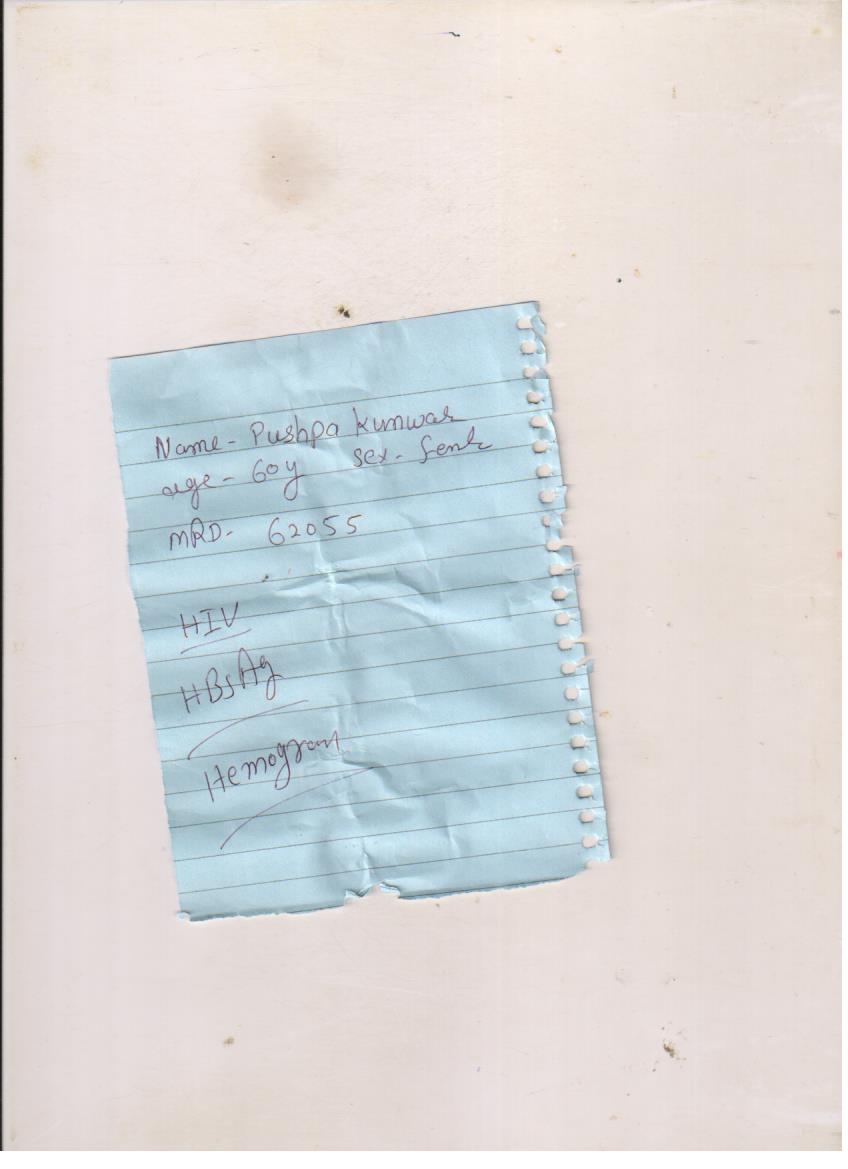 Name- Pushpa Kunwar
age- 60y sex-
MRD- 62055
HIV
HBsAg
Hemogram